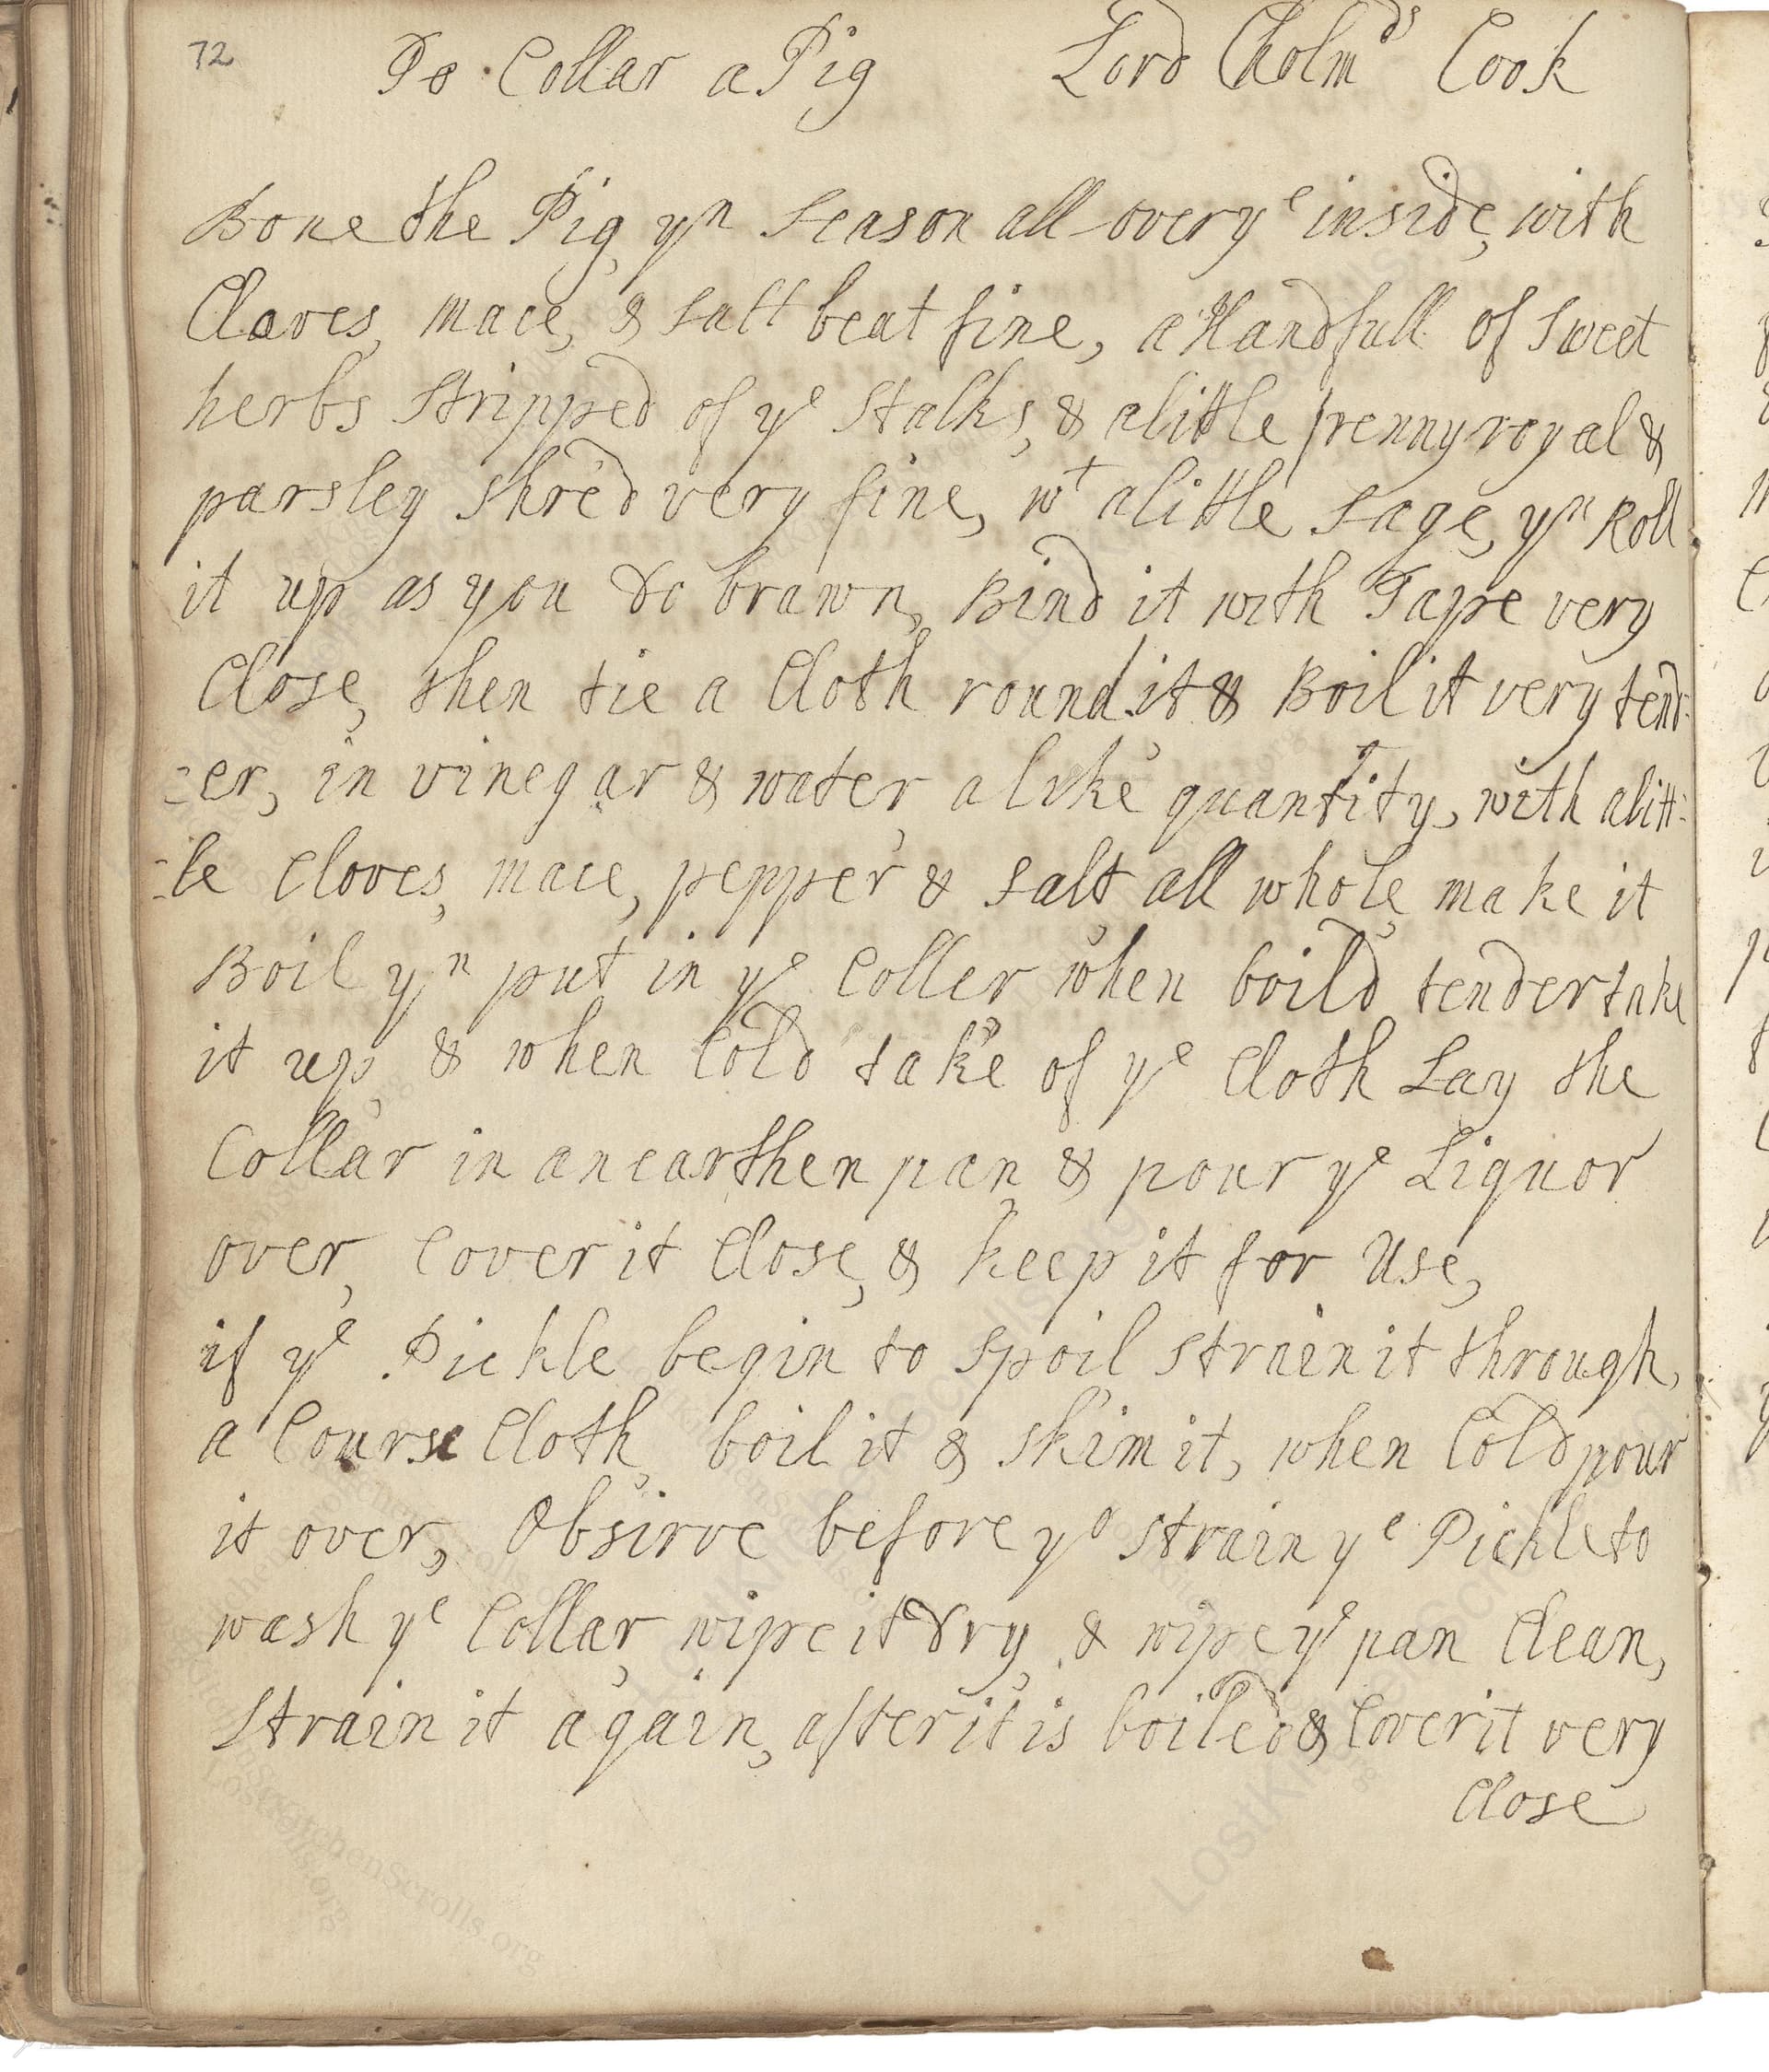 72 To Collar a Pig Lord Cholm^ds Cook
Bone the Pig, y^n Season all over y^e inside, with
Cloves, mace, & Salt beat fine, a Handfull of Sweet
herbs Stripped of y^e Stalks, & alittle pennyroyal &
parsley Shred very fine, w^t alittle Sage, y^n Roll
it up as you do brawn, Bind it with Tape very
Close, then tie a Cloth round it & Boil it very tend:
:er, in vinegar & water, a like quantity, with alitt:
:le Cloves, mace, pepper & Salt all whole, make it
Boil y^n put in y^e Coller when boild tender take
it up, & when Cold take of y^e Cloth Lay the
Collar in an earthen pan, & pour y^e Liquor
over, Cover it Close, & keep it for Use,
if y^e Pickle begin to Spoil Strain it through,
a Course Cloth, boil it & Skim it, when Cold pour
it over, Obsirve before y^o Strain y^e Pickle to
wash y^e Collar, wipe it dry, & wipe y^e pan Clean,
Strain it again, after it is boiled & Cover it very
Close
LostKitchenScrolls.org